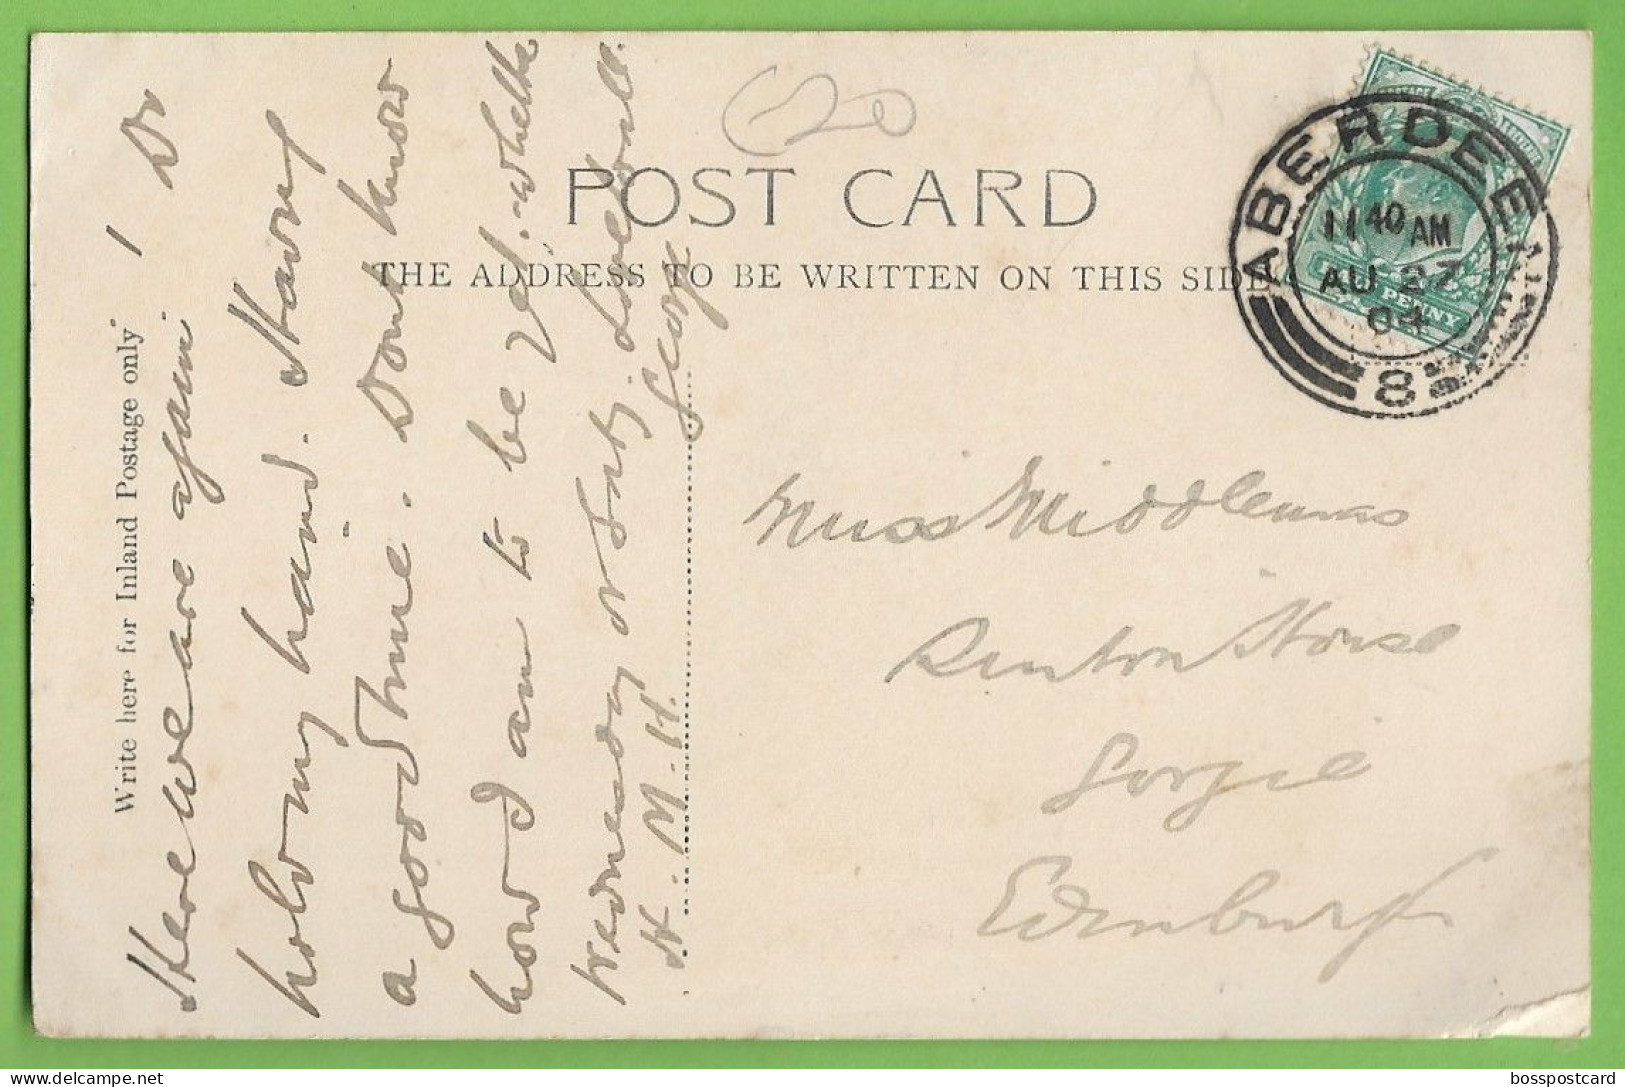 POST CARD
THE ADDRESS TO BE WRITTEN ON THIS SIDE
Write here for Inland Postage only
Here we are again! Do
hold my hand. Having
a good time. Dont know
how I am to be yet. whether
Wednesday or Saty. Love
H.M.H. George
ABERDEEN
11 40 AM
AU 27
04
8
PENNY
Miss Middlemas
Renton House
Gorgie
Edinburgh
bosspostcard